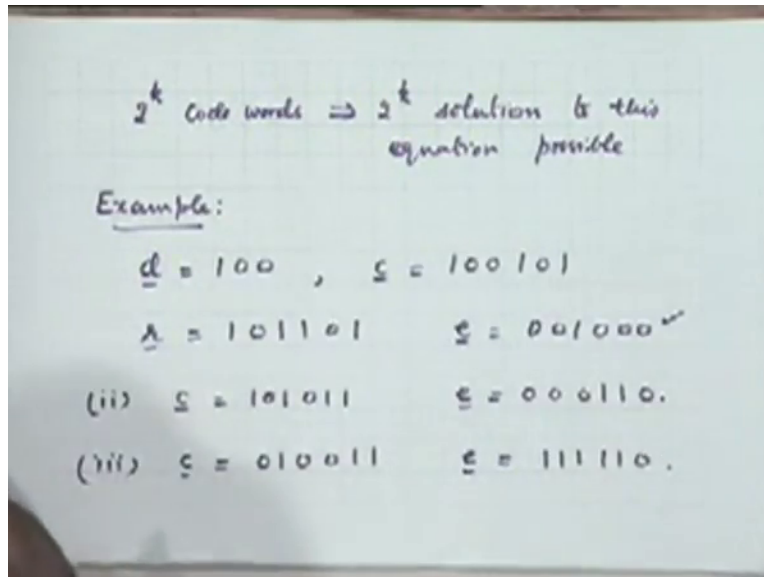 2^k Code words ⇒ 2^k solution to this
equation possible
Example:
d = 100 , c = 100101
r = 101101 e = 001000 ✓
(ii) c = 101011 e = 000110.
(iii) c = 010011 e = 111110.